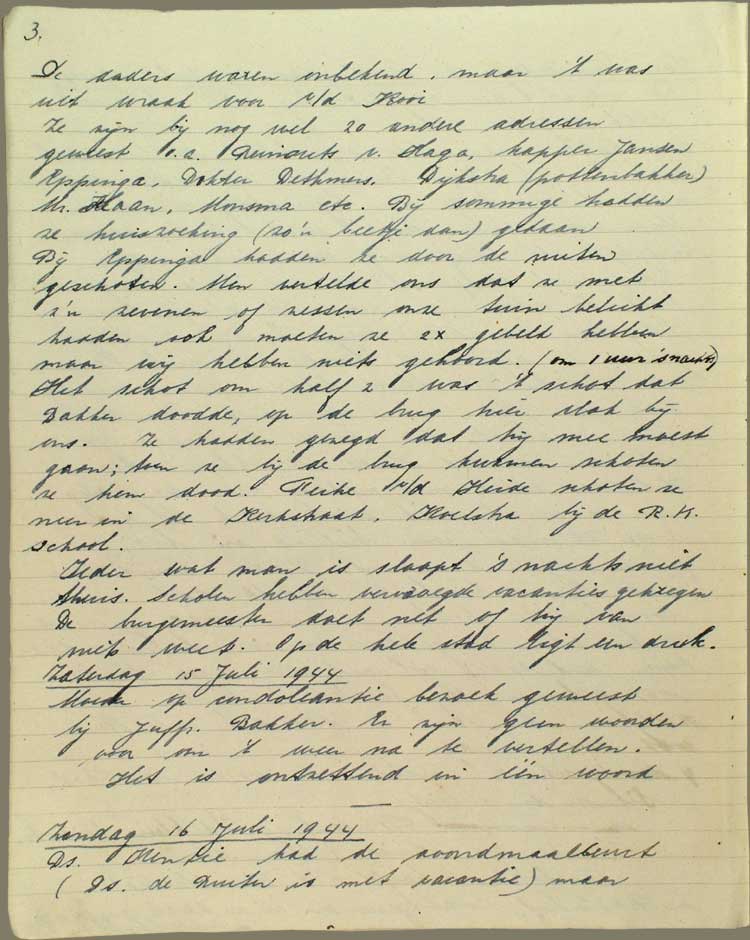 3.
De daders waren onbekend, maar 't was
uit wraak voor v/d Kooi
Ze zijn bij nog wel 20 andere adressen
geweest o.a. v. Haga, kapper Jansen
Eppinga, Dokter Dethmers, Dijkstra (pottenbakker)
Mr. Haan, Monsma etc. Bij sommige hadden
ze huiszoeking (zo'n beetje dan) gedaan
Bij Eppinga hadden ze door de ruiten
geschoten. Men vertelde ons dat ze met
z'n zevenen of zessen onze tuin belicht
hadden ook moeten ze 2x gebeld hebben
maar wij hebben niets gehoord. (om 1 uur 's nachts)
Het schot om half 2 was 't schot dat
Bakker doodde, op de brug hier vlak bij
ons. Ze hadden gezegd dat hij mee moest
gaan; toen ze bij de brug kwamen schoten
ze hem dood. Feike v/d Heide schoten ze
neer in de Kerkstraat, Koelstra bij de R.K.
school.
Ieder wat man is slaapt 's nachts niet
thuis. Scholen hebben vervroegde vacanties gekregen
De burgemeester doet net of hij van
niets weet. Op de hele stad ligt een druk.
Zaterdag 15 Juli 1944
Moeder op condoleantie bezoek geweest
bij Juffr. Bakker. Er zijn geen woorden
voor om 't weer na te vertellen.
Het is ontzettend in één woord
Zondag 16 Juli 1944
Ds. had de avondmaalbeurt
(Ds. de Ruiter is met vacantie) maar